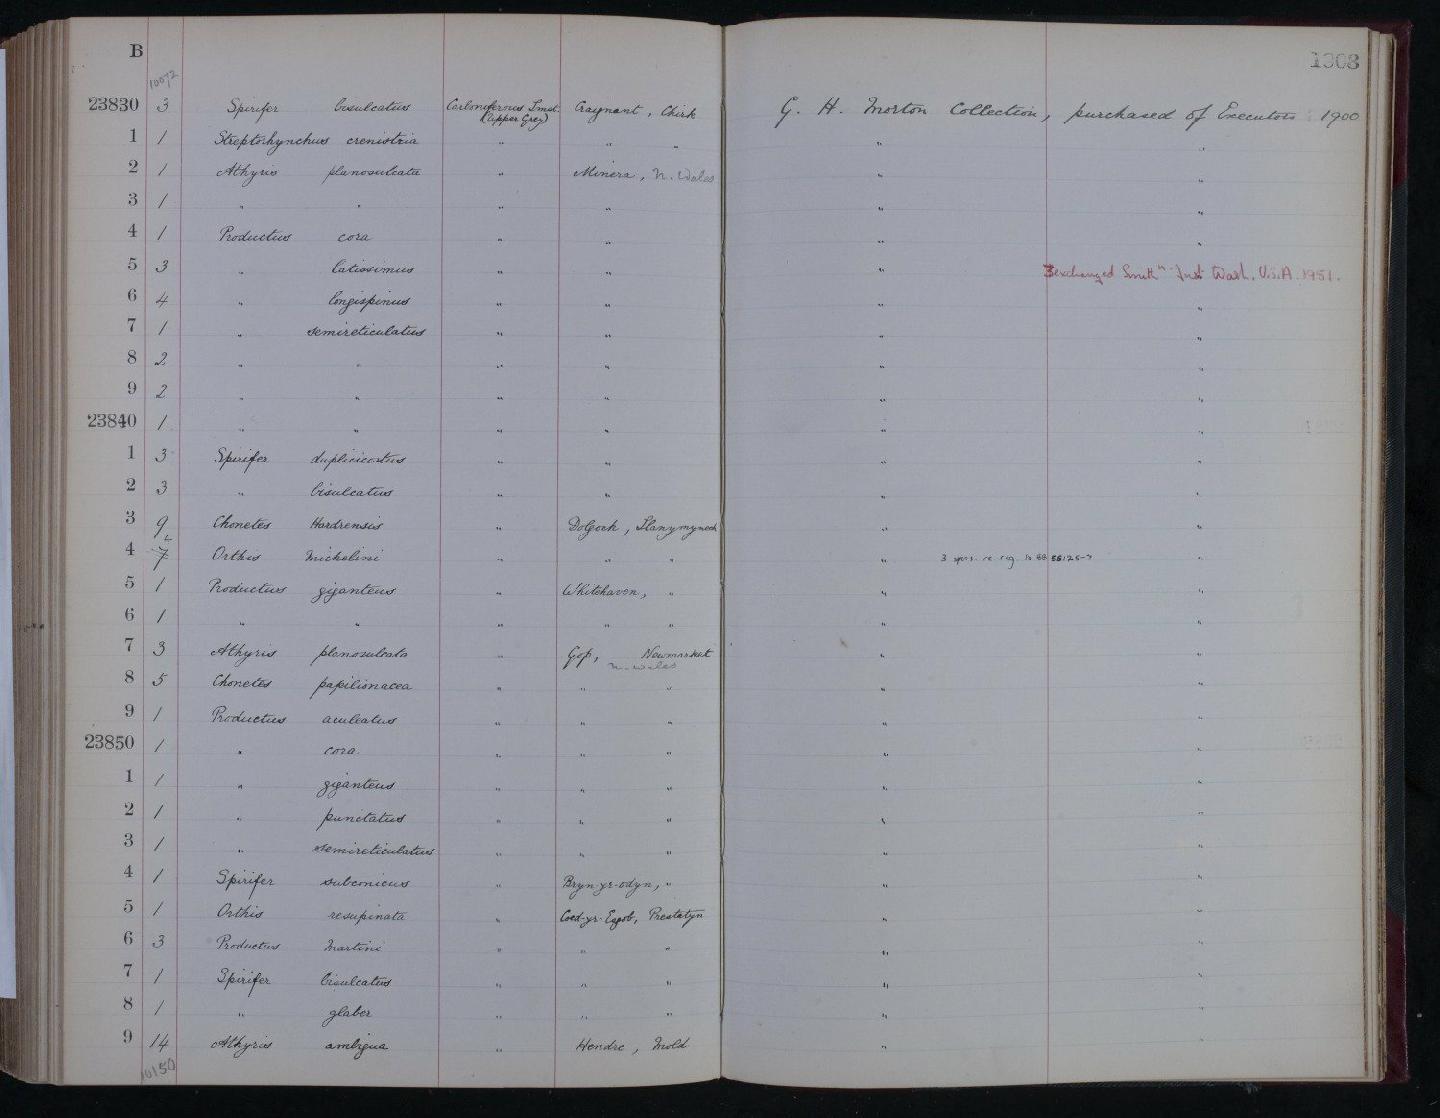 B
1303
10072
23830 3 Spirifer bisulcatus Carboniferous Lmst. (Upper Grey) Craignant, Chirk G. H. Morton Collection, purchased of Executors 1900
1 1 Streptorhynchus crenistria " " " " "
2 1 Athyris planosulcata " Minera, N. Wales " "
3 1 " " " " " "
4 1 Productus cora " " " "
5 3 " latissimus " " " 3 exchanged Smith" Inst Wash. U.S.A. 1951.
6 4 " longispinus " " " "
7 1 " semireticulatus " " " "
8 2 " " " " " "
9 2 " " " " " "
23840 1 " " " " " "
1 3 Spirifer duplicicostus " " " "
2 3 " bisulcatus " " " "
3 9 Chonetes Hardrensis " Dolgoch, Llanymynech " "
4 7 Orthis Michelini " " " " 3 spms. re reg. as BB 55125-7 "
5 1 Productus giganteus " Whitehaven, " " "
6 1 " " " " " " "
7 3 Athyris planosulcata " Gop, Newmarket " "
N. Wales
8 5 Chonetes papilionacea " " " " "
9 1 Productus aculeatus " " " " "
23850 1 " cora " " " " "
1 1 " giganteus " " " " "
2 1 " punctatus " " " " "
3 1 " semireticulatus " " " " "
4 1 Spirifer subconicus " Bryn-yr-odyn, " " "
5 1 Orthis resupinata " Coed-yr-Esgob, Prestatyn " "
6 3 Productus Martini " " " " "
7 1 Spirifer bisulcatus " " " " "
8 1 " glaber " " " " "
9 14 Athyris ambigua " Hendre, Mold " "
10150